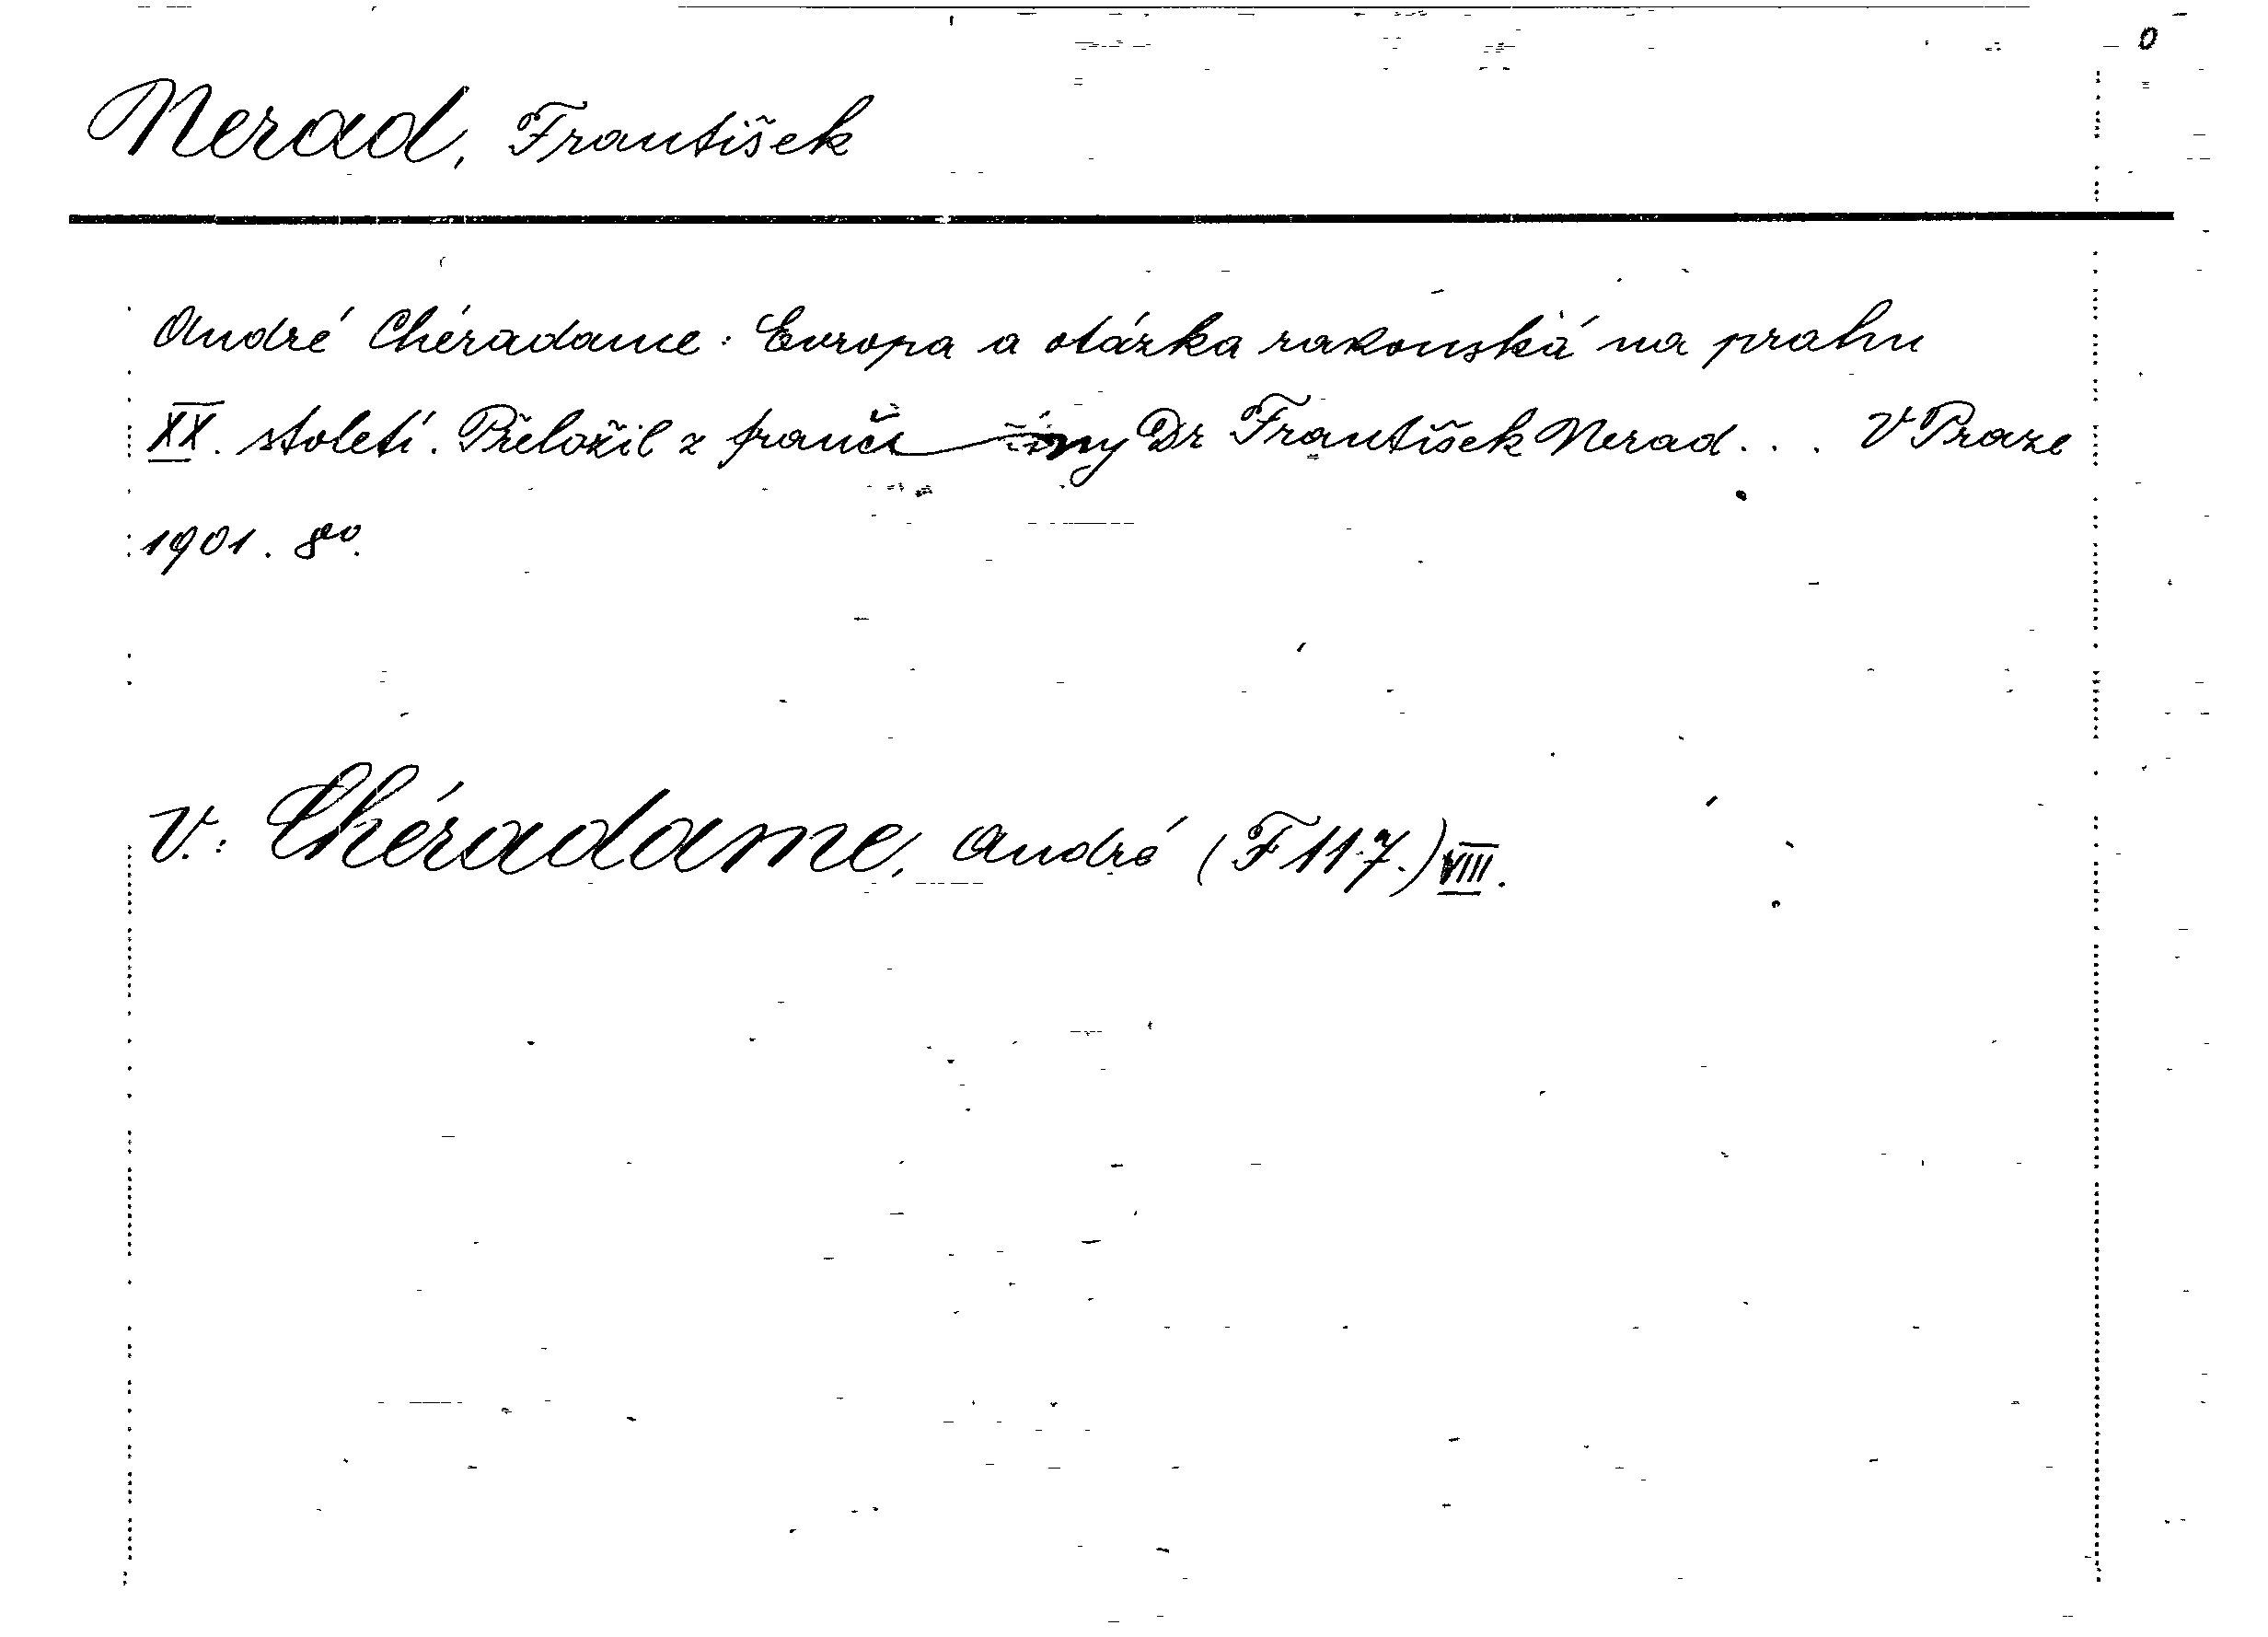 0
Nerad, František
André Chéradame: Evropa a otázka rakouská na prahu
XX. století. Přeložil z franči ny Dr František Nerad... V Praze
1901. 8vo.
V.: Chéradame, André (F 117.) VIII.